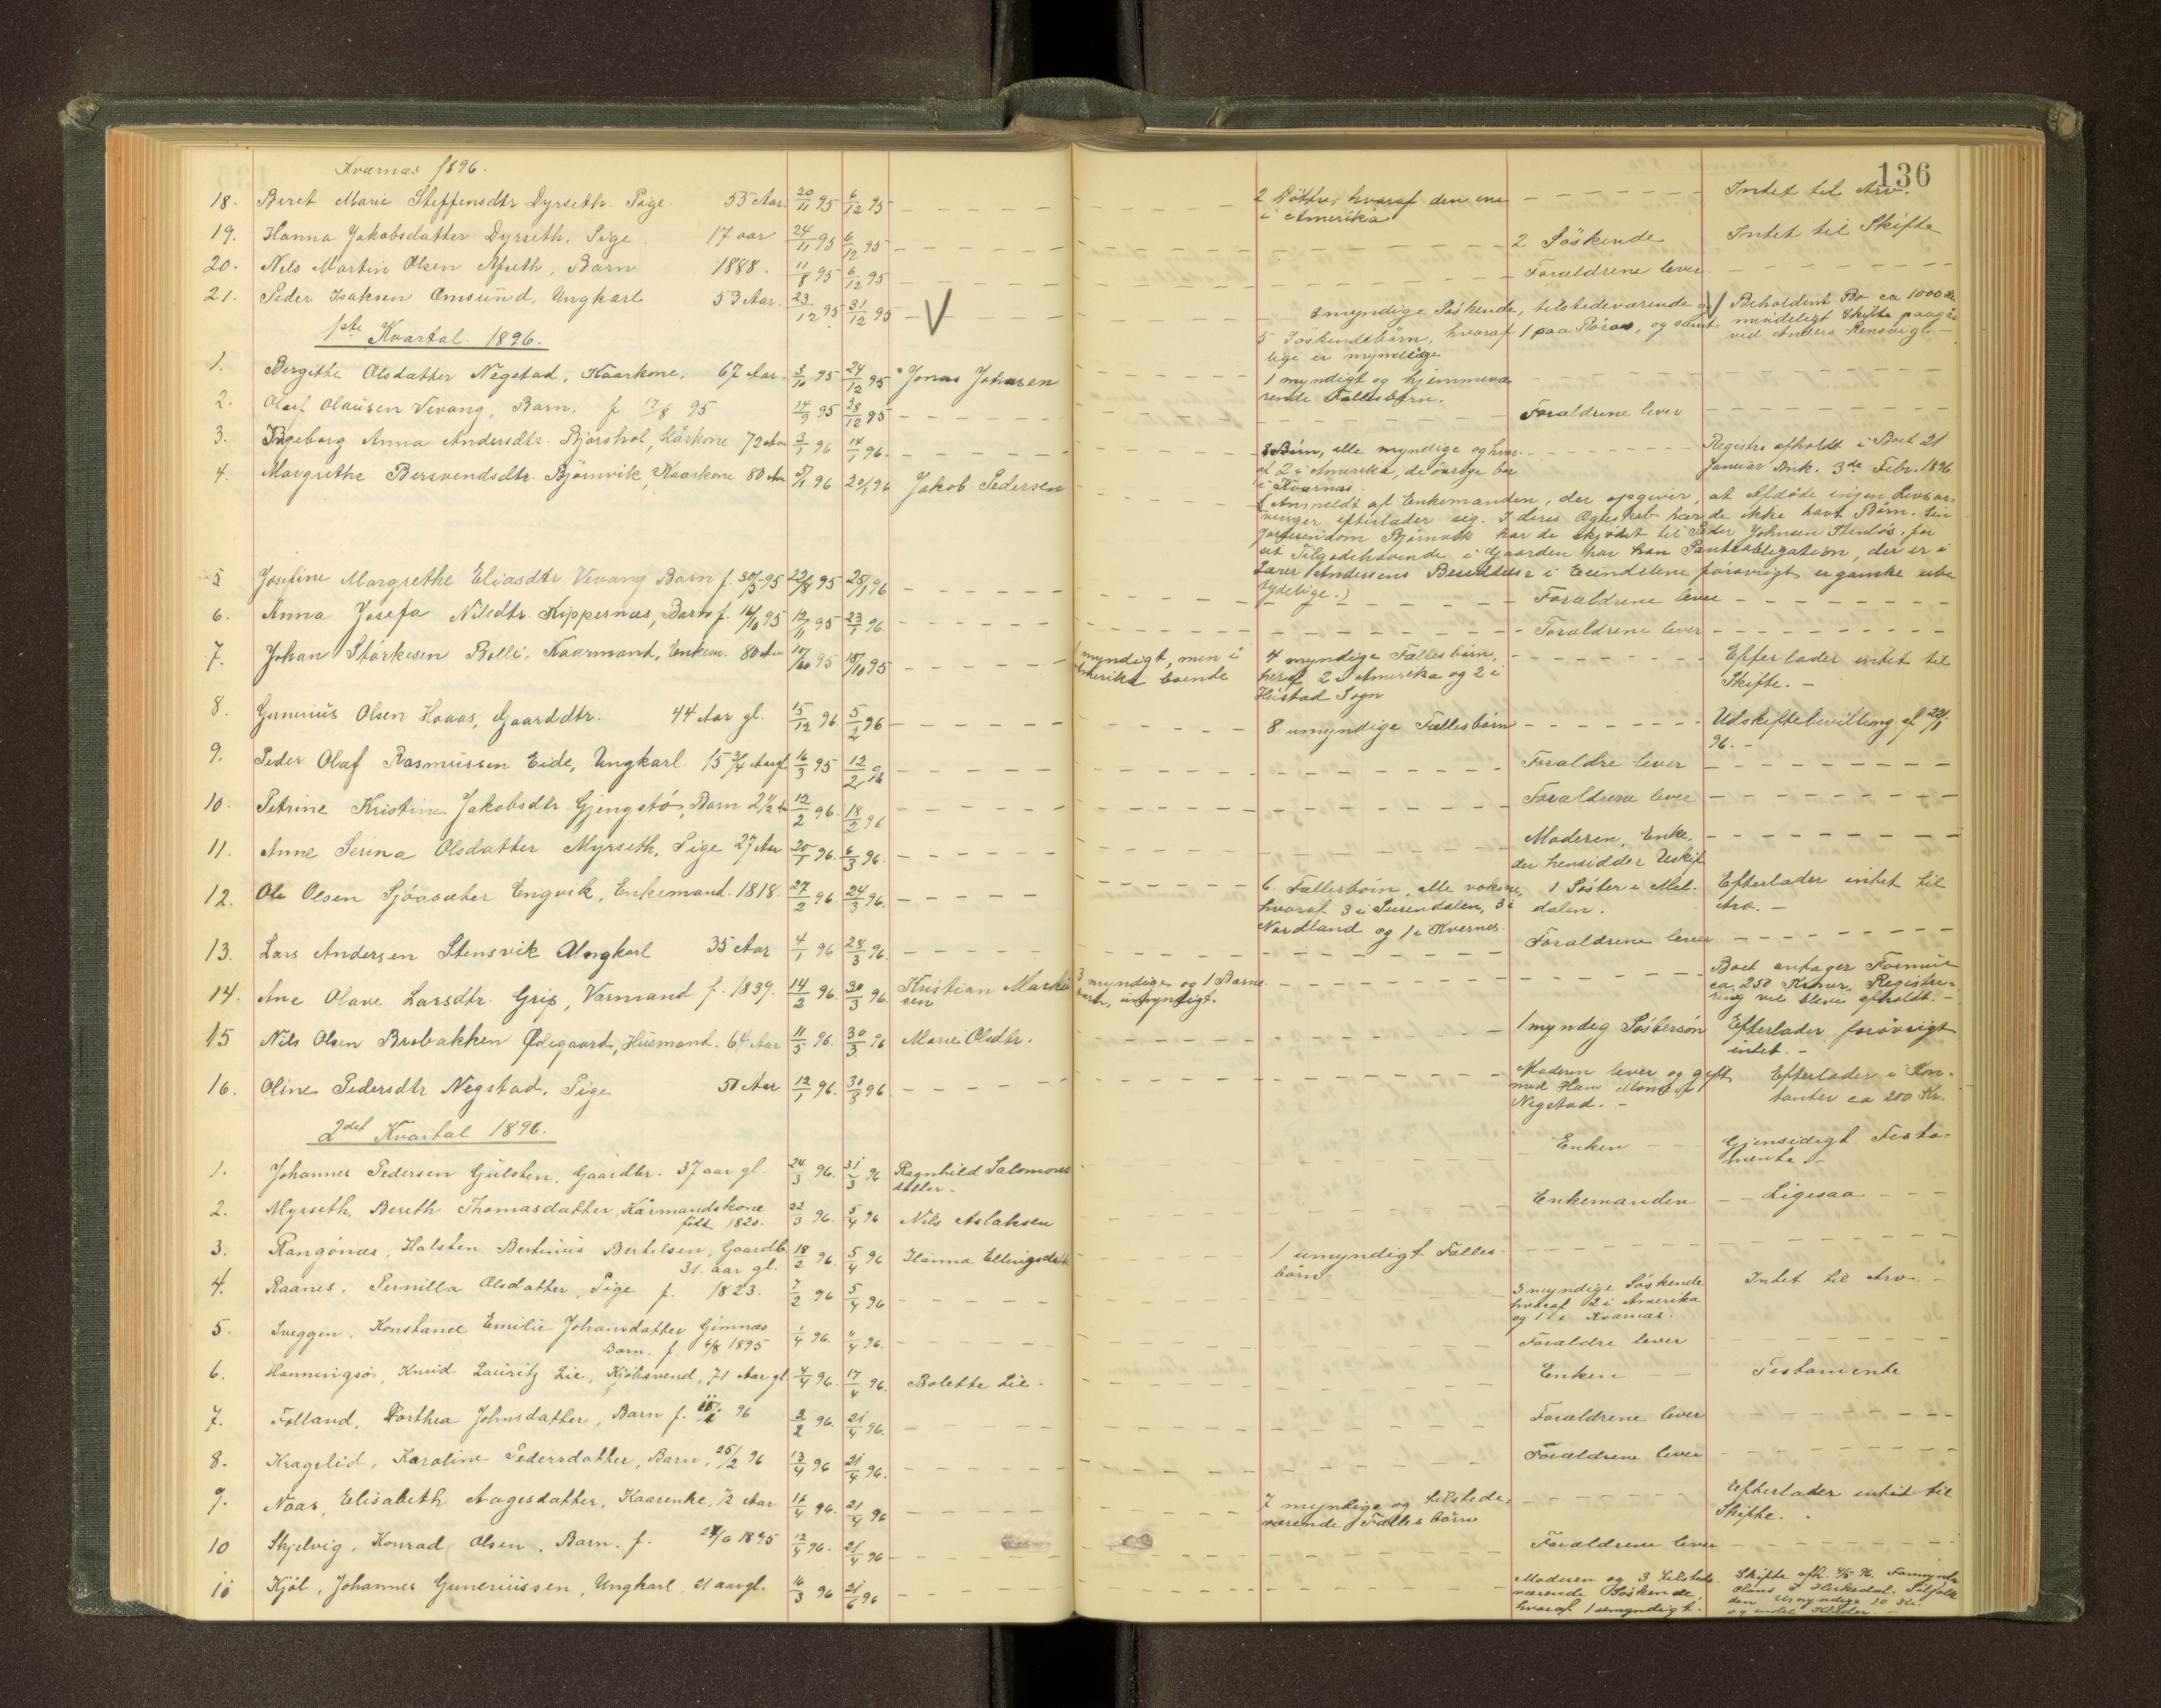 Kvarnæs 1896.
136
18. Beret Marie Steffensdtr Dyrseth. Pige. 55 Aar. 20/11 95 6/12 95 2 Döttre, hvoraf den ene Intet til Arv.
i Amerika
19. Hanna Jakobsdatter Dyrseth, Pige. 17 aar 24/11 95 6/12 95 2 Söskende Intet til Skifte
20. Nils Martin Olsen, Barn 1888. 11/8 95 6/12 95 Forældrene lever
21. Peder Isaksen Omsund, Ungkarl 53 Aar. 23/12 95 31/12 95 V myndige Söskende, tilstedeværende V Beholdent Bo ca 1000 Kr.
5 Söskendebörn, hvoraf 1 paa Röros, og samt- mindeligt Skifte paagår
lige er myndige ved Anders Rensvig.
1ste Kvartal 1896.
1. Bergitte Olsdatter Negstad, Kaarkone. 67 Aar. 3/10 95 24/12 95 Jonas Johnsen 1 myndigt og hjemmevæ
rende Fællesbørn.
2. Oluf Olausen Vevang, Barn. f 17/8 95 14/9 95 28/12 95 Forældrene lever
3. Ingeborg Anna Andersdtr. Bjørshol, Kårkone 72 Aar 3/1 96 14/1 96. 8 Börn, alle myndige og hvor- Registr. afholdt i Boet 21
af 2 i Amerika, de övrige bor Januar Ank. 3de Febr. 1896.
i Kvarnæs.
4. Margrethe Bersvendsdtr. Bjørnvik, Kaarkone 80 Aar 5/1 96 20/1 96 Jakob Pedersen
(Anmeldt af Enkemanden, der opgiver, at Afdöde ingen Livsar-
vinger efterlader sig. I deres Ægteskab har de ikke havt Børn. Sin
Jordeiendom Bjørnvik har de skjødet til Peder Johnsen Stenløs, for
sit Tilgodehavende i Gaarden har han Panteobligation, der er i
Lærer Andersens Besiddelse i Eiendelene forøvrigt er ganske ube
tydelige.)
5 Josefine Margrethe Eliasdtr Vevang Barn f. 30/3 95 22/8 95 25/1 96 Forældrene lever
6. Anna Josefa Nilsdtr. Kippernæs, Barn f. 16/10 95 12/11 95 23/1 96. Forældrene lever
7. Johan Storkesen Bolli, Kaarmand, Enkem. 80 Aar 10/10 95 18/10 95 1 myndigt, men i 4 myndige Fællesbörn, Efterlader intet til
Amerika boende heraf 2 i Amerika og 2 i Skifte. -
Hustad Sogn
8. Gunerius Olsen Hoaas, Gaarddtr. 44 Aar gl. 15/12 96 5/2 96 8 umyndige Fællesbörn Udskiftebevilling af 22/1
96. -
9. Peder Olaf Rasmussen Eide, Ungkarl. 15 3/4 Aar gl 16/3 95 12/2 96 Forældre lever
10. Petrine Kristine Jakobsdtr Gjengstö, Barn 2 1/2 Aar 12/2 96. 18/2 96 Forældrene lever
11. Anne Serina Olsdatter Myrseth, Pige 27 Aar 20/1 96. 6/3 96. Moderen, Enke,
der hensidder Uskift
12. Ole Olsen Sjöasæter Engvik, Enkemand. 1818. 27/2 96. 24/3 96. 6. Fællesbörn, alle voksne, 1 Söster i Mel- Efterlader intet til
hvoraf 3 i Surendalen, 3 i dalen. Arv. -
Nordland og 1 i Kvernes.
13. Lars Andersen Stensvik Ungkarl 35 Aar 4/1 96 28/3 96. Forældrene lever
14. Ane Olave Larsdtr. Grip, Varmand f. 1839. 14/2 96. 30/3 96. Kristian Marki- 3 myndige og 1 Barne Boet antager Formue
sen barn, umyndigt. ca. 250 Kroner. Registre-
ring vil blive afholdt. -
15 Nils Olsen Brobakken Ødegaard, Husmand. 64 Aar 11/5 96. 30/3 96 Marie Olsdtr. 1 myndig Söstersön Efterlader forövrigt
intet. -
16. Oline Pedersdtr Negstad, Pige 50 Aar 12/1 96. 30/3 96 Moderen lever og gift Efterlader i Kon-
med Hans Negstad. - tanter ca 200 Kr.
2det Kvartal 1896.
1. Johannes Pedersen Gulsten, Gaardbr. 37 aar gl. 24/3 96. 31/3 96 Ragnhild Salomons Enken Gjensidigt Testa-
datter - mente. -
2. Myrseth, Bereth Thomasdatter, Kårmandskone 22/3 96. 5/4 96 Nils Aslaksen Enkemanden Ligesaa
född 1820.
3. Rangönæs, Halsten Bertinius Bertelsen, Gaardb. 18/2 96. 5/4 96 Hanna Ellingsdatt 1 umyndigt Fælles-
31 aar gl. börn.
4. Raanes, Pernilla Olsdatter, Pige f. 1823. 7/2 96 5/4 96 3 myndige Söskende Intet til Arv. -
hvoraf 2 i Amerika
og 1 i Kvarnæs.
5. Sveggen, Konstance Emilie Johansdatter Gimnæs 1/4 96. 11/4 96. Forældre lever
Barn. f. 6/8 1895
6. Honningsöi, Knud Lauritz Lie, Kjölsvend, 71 Aar gl 4/4 96. 17/4 96. Bolette Lie. Enken Testamente
7. Folland, Dorthea Johnsdatter, Barn f. 96 2/2 96. 21/4 96. Forældrene lever
8. Kragelid, Karoline Pedersdatter, Barn, 25/2 96 13/4 96 21/4 96. Forældrene lever
9. Naas, Elisabeth Aagesdatter, Kaarenke, 72 Aar 16/4 96. 21/4 96 7 myndige og tilstede- Efterlader intet til
værende Fællesbörn Skifte.
10 Skjelvig, Konrad Olsen, Barn. f. 1895 12/4 96. 21/4 96 Forældrene lever
11 Kjöl, Johannes Guneriussen, Ungkarl, 21 aar gl. 16/3 96 21/6 96 Moderen og 3 tilstede- Skifte afh. 4/5 96. Formynder
værende Söskende,
hvoraf 1 umyndigt. den Umyndige 10 Kr.